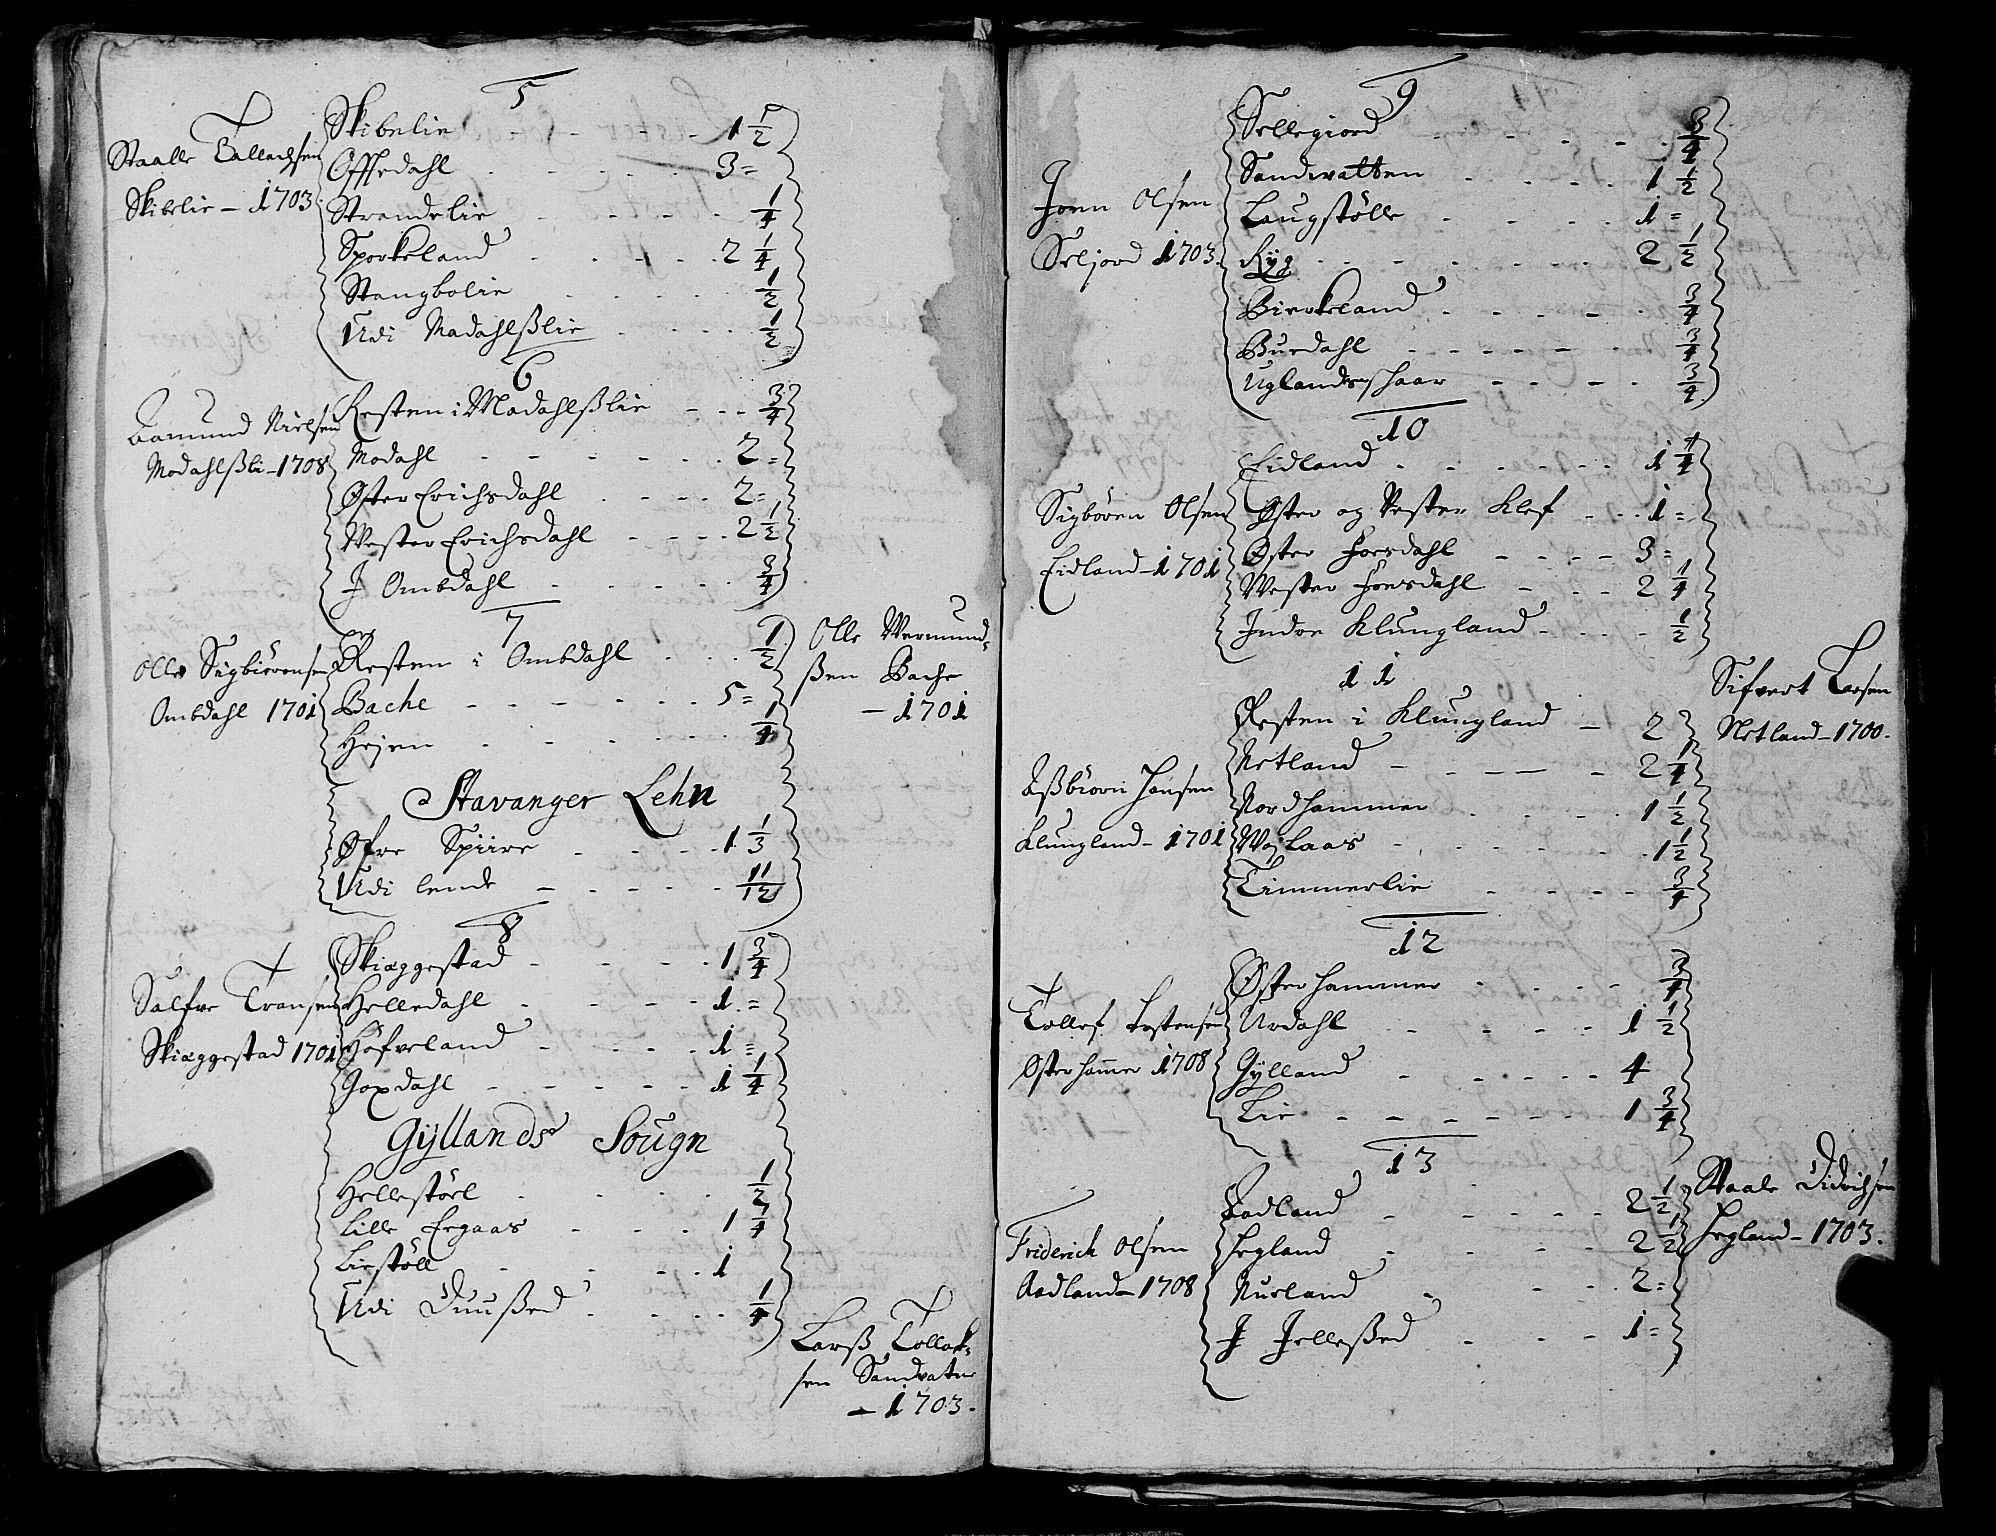 5
Staalle Tallachsen
Skibelie – 1703
Skibelie - - - - 1 1/2
Offedahl - - - - 3 =
Strandelie - - - - 1/4
Sporkeland - - - - 2 1/4
Stangbolie - - - - 1/2
Udi Madahlßlie - - - - 1/2
6
Aamund Nielsen
Modahlßli – 1708
Resten i Madahlßlie - - - 3/4
Modahl - - - - 2 =
Øster Erichsdahl - - - - 2 =
Wester Erichsdahl - - - - 2 1/2
J Ombdahl - - - - 3/4
7
Olle Sigbiørensen
Ombdahl 1701
Resten i Ombdahl - - - 1/2
Bache - - - - 5 =
Hejen - - - - 1/4
Olle Wermund-
ßen Bache
– 1701
Stavanger Lehn
Øfre Spiire - - - - 1 1/3
Udi lende - - - - 11/12
8
Salfve Tronsen
Skiæggestad 1701
Skiæggestad - - - - 1 3/4
Helledahl - - - - 1 =
Høfveland - - - - 1 =
Joxdahl - - - - 1 1/4
Gÿllands Sougn
Hellestöel - - - - 1/2
Lille Ergaas - - - - 1 1/4
Liestöll - - - - 1
Udi Duußed - - - - 1/4
Larß Tollack-
sen Sandvatn
– 1703.
9
Joen Olsen
Seljord 1703.
Sellegiord - - - - 3/4
Sandvatten - - - - 1 1/2
Laugstölle - - - - 1 =
Rÿg - - - - 2 1/2
Birkeland - - - - 3/4
Buedahl - - - - 3/4
Uglandsschaar - - - - 3/4
10
Sigbören Olsen
Eidland – 1701
Eidland - - - - 1 1/4
Øster og Vester Klef - - - 1 =
Øster Foersdahl - - - - 3 =
Wester Foersdahl - - - 2 1/4
Indre Klungland - - - - 1/2
11
Aßbiörn Hansen
Klungland – 1701
Resten i Klungland – 2
Netland - - - - 2 1/4
Nordhammer - - - - 1 1/2
Wejlaas - - - - 1 1/2
Timmerlie - - - - 3/4
Sifvert Larsen
Netland – 1700.
12
Tollef Tostensen
Østerham̄er 1708
Østerhammer - - - - 3/4
Urdahl - - - - 1 1/2
Gÿlland - - - - 4
Lie - - - - 1 3/4
13
Friderich Olsen
Aadland – 1708
Aadland - - - - 2 1/2
Hegland - - - - 2 1/2
Nurland - - - - 2 =
J Jelleßed - - - - 1 =
Staale Didrichsen
Hegland – 1703.